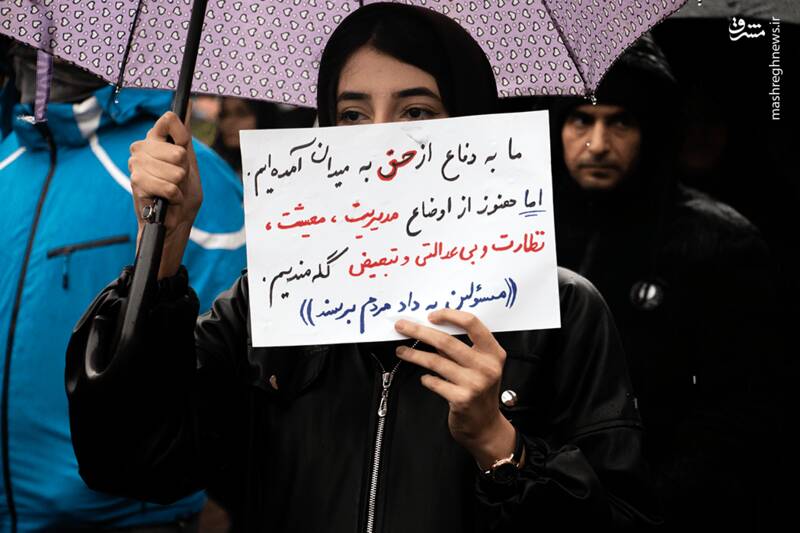 ما به دفاع از حق به میدان آمده‌ایم.
اما هنوز از اوضاع مدیریت، معیشت،
نظارت و بی‌عدالتی و تبعیض گله‌مندیم.
((مسئولین به داد مردم برسند))
مشرق
mashreghnews.ir